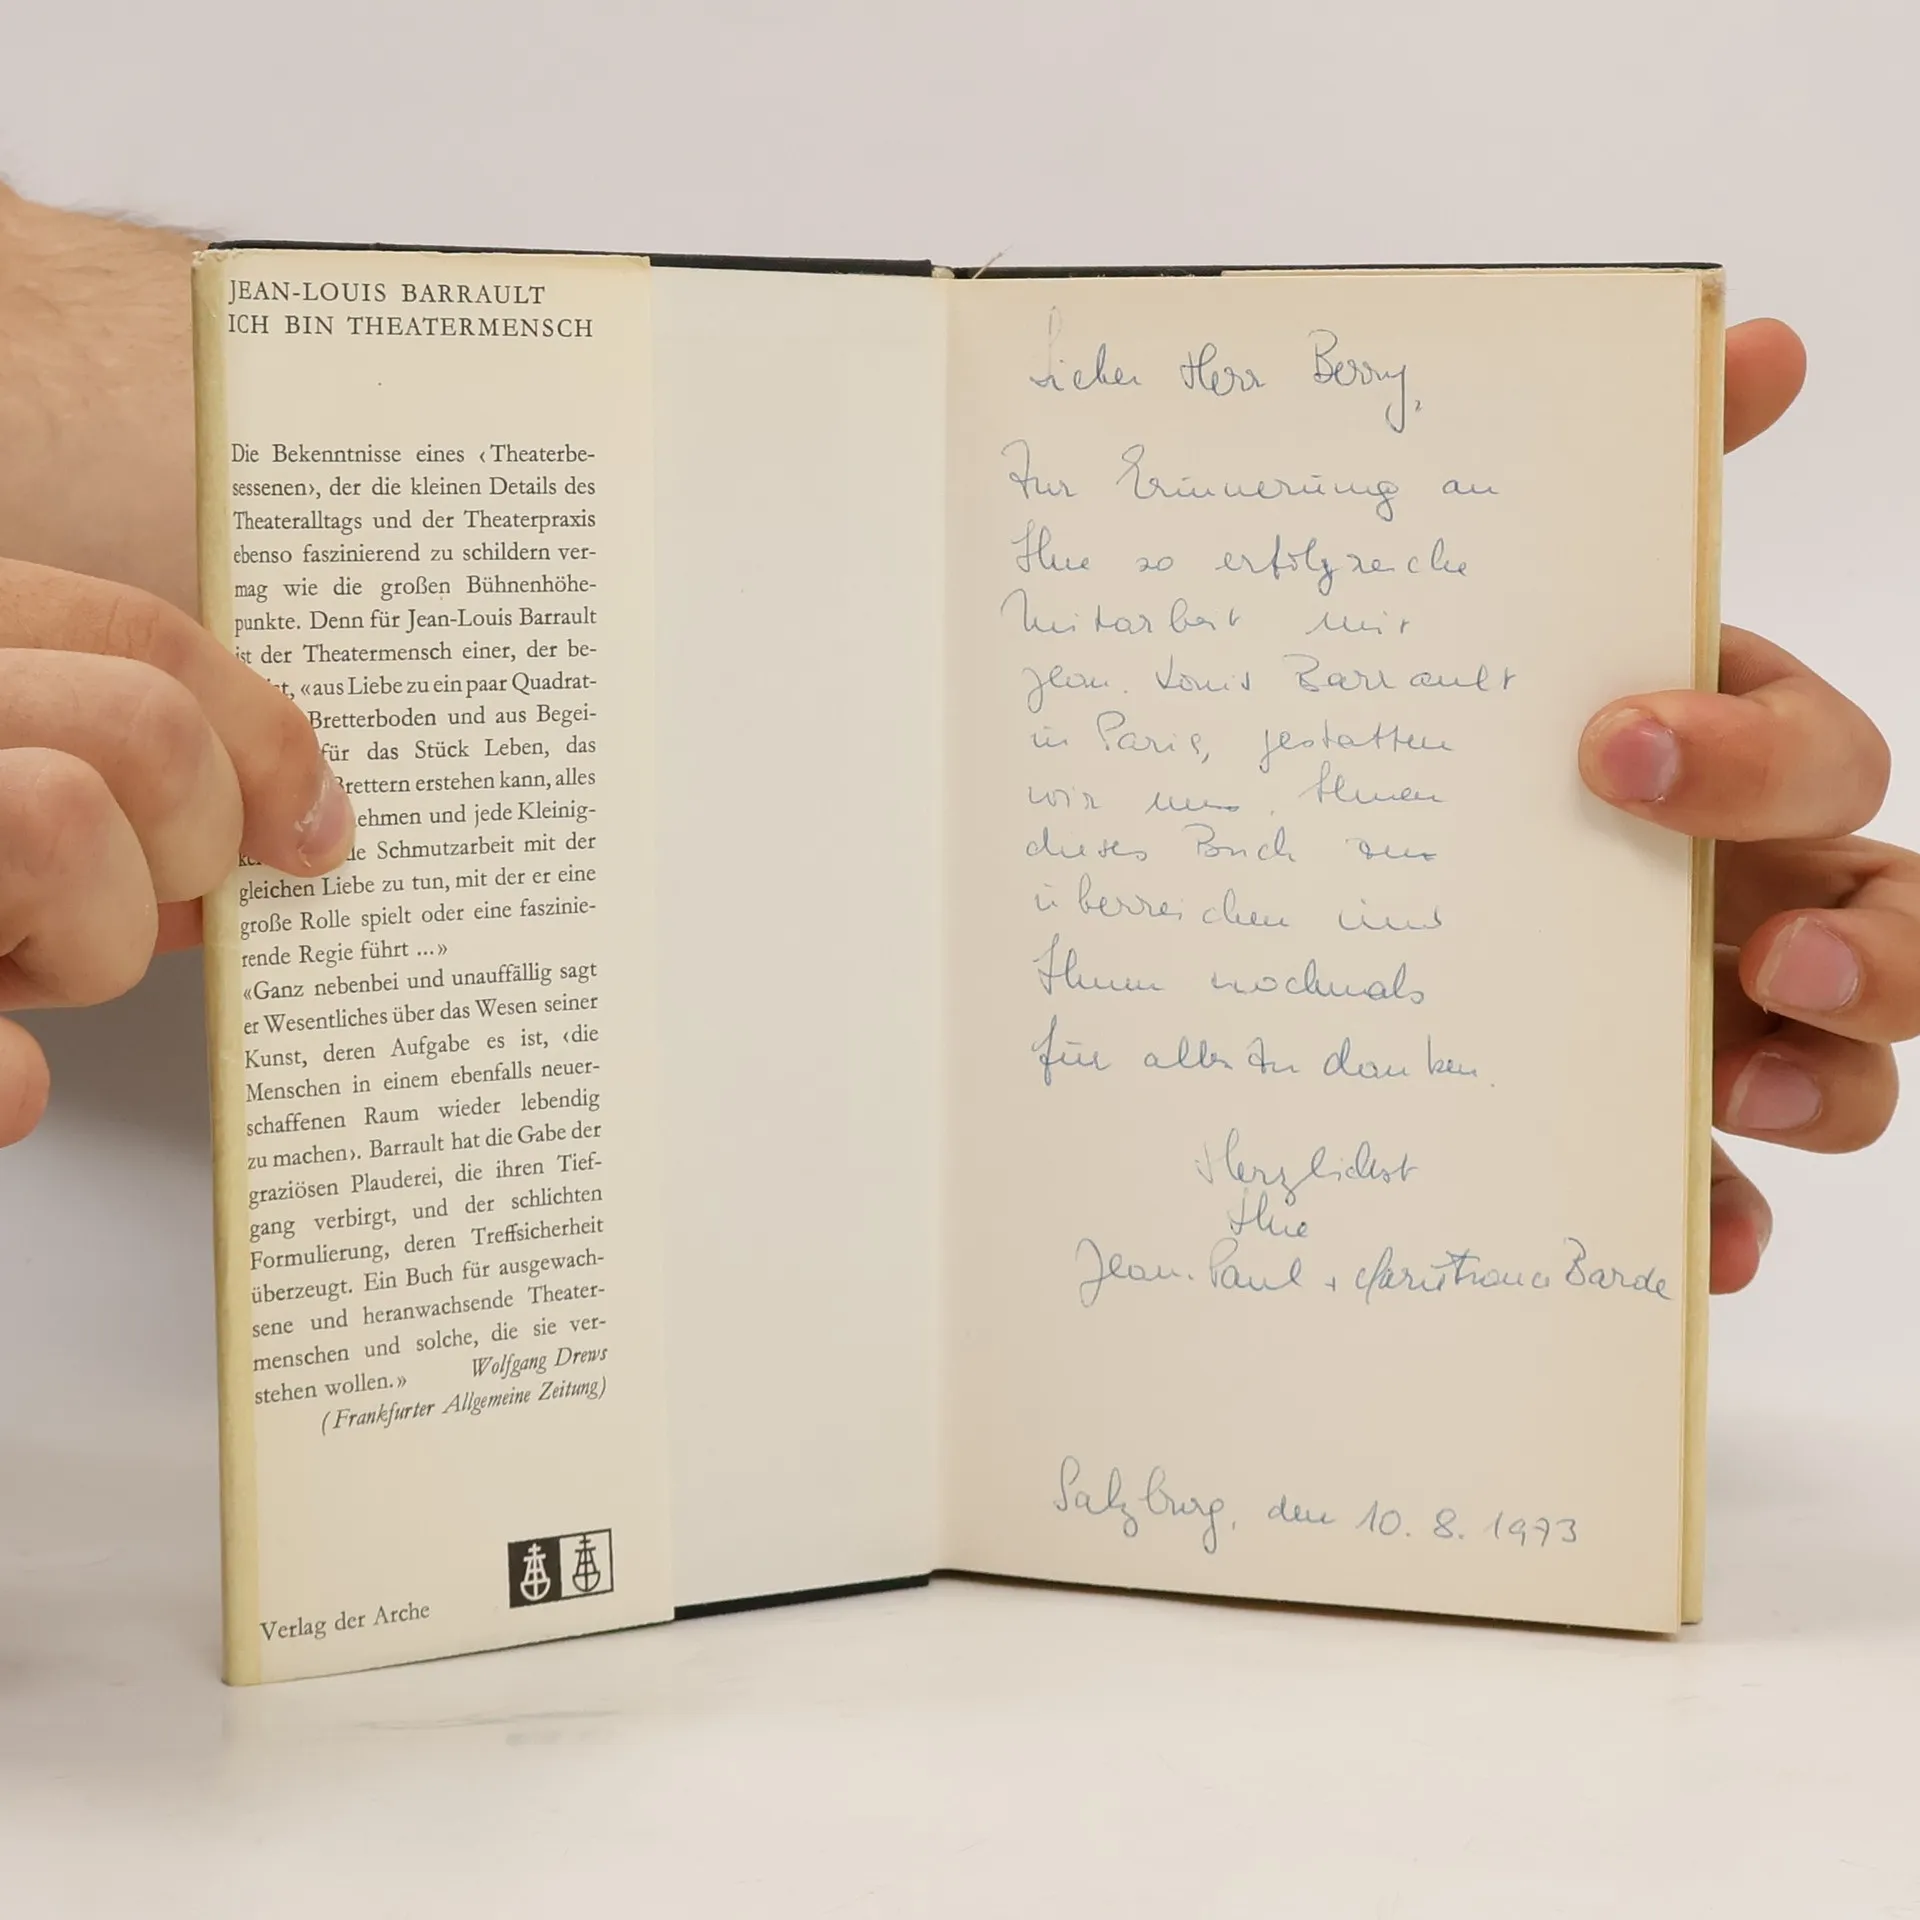 JEAN-LOUIS BARRAULT
ICH BIN THEATERMENSCH
Die Bekenntnisse eines ‹Theaterbe-
sessenen›, der die kleinen Details des
Theateralltags und der Theaterpraxis
ebenso faszinierend zu schildern ver-
mag wie die großen Bühnenhöhe-
punkte. Denn für Jean-Louis Barrault
ist der Theatermensch einer, der be-
«aus Liebe zu ein paar Quadrat-
Bretterboden und aus Begei-
für das Stück Leben, das
Brettern erstehen kann, alles
und jede Kleinig-
Schmutzarbeit mit der
gleichen Liebe zu tun, mit der er eine
große Rolle spielt oder eine faszinie-
rende Regie führt ...»
«Ganz nebenbei und unauffällig sagt
er Wesentliches über das Wesen seiner
Kunst, deren Aufgabe es ist, ‹die
Menschen in einem ebenfalls neuer-
schaffenen Raum wieder lebendig
zu machen›. Barrault hat die Gabe der
graziösen Plauderei, die ihren Tief-
gang verbirgt, und der schlichten
Formulierung, deren Treffsicherheit
überzeugt. Ein Buch für ausgewach-
sene und heranwachsende Theater-
menschen und solche, die sie ver-
stehen wollen.» Wolfgang Drews
(Frankfurter Allgemeine Zeitung)
Verlag der Arche
Lieber Herr Berry,
Zur Erinnerung an
Ihre so erfolgreiche
Mitarbeit mit
Jean-Louis Barrault
in Paris, gestatten
wir uns, Ihnen
dieses Buch zu
überreichen und
Ihnen nochmals
für alles zu danken.
Herzlichst
Ihre
Jean-Paul + Barde
Salzburg, den 10. 8. 1973